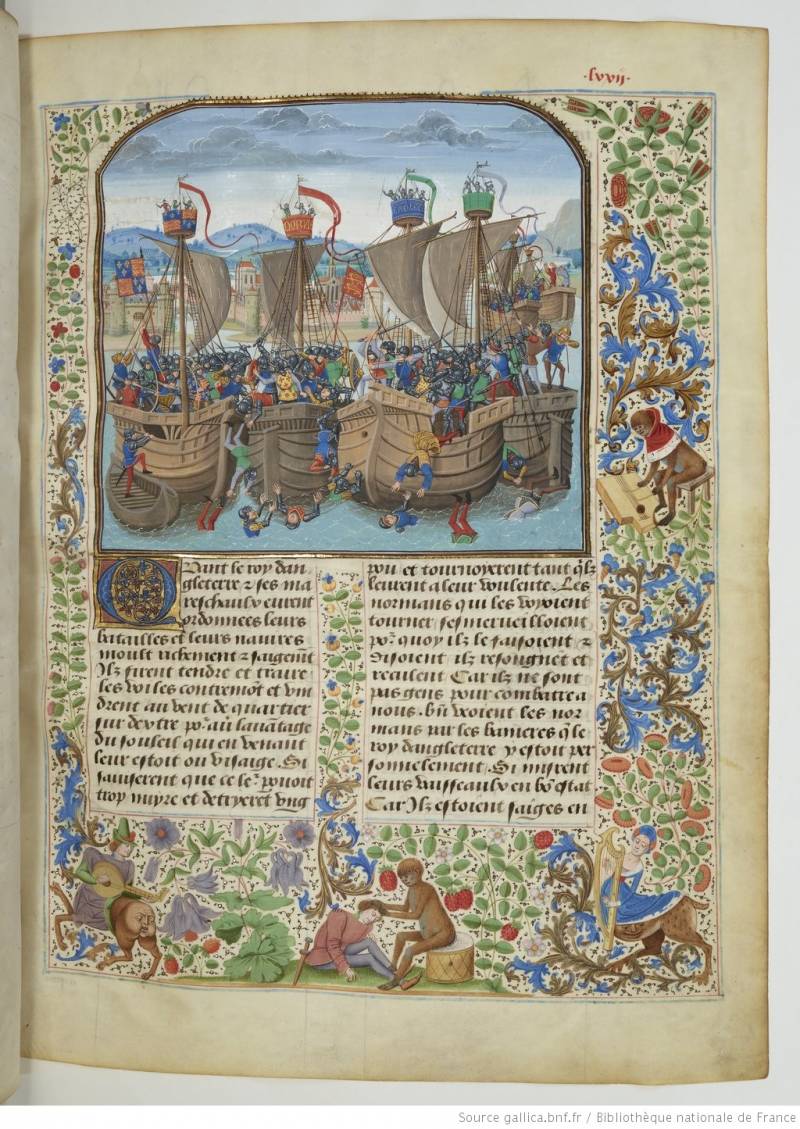 ·lxxij·
Quant le roy dan-
gleterre & ses ma
reschaulx eurent
ordonnees leurs
batailles et leurs navires
moult richement & saigemt
Ilz firent tendre et traire
les voiles contremot et vin
drent au vent de quartier
sur dextre por avoir lavantage
du souleil qui en venant
leur estoit ou visaige. Si
saviserent que ce ler povoit
trop nuyre et detryerent ung
pou et tournoyerent tant qlz
leurent a leur voulente. Les
normans qui les veoient
tourner sesmerveilloient
por quoy ilz le faisoient &
disoient ilz resongnet et
reculent Car ilz ne sont
pas gens pour combatre a
nous. bn veoient les nor
mans par les banieres q le
roy dangleterre y estoit per
sonnelement. Si misrent
leurs vaisseaulx en bo estat
Car Ilz estoient saiges en
Source gallica.bnf.fr / Bibliothèque nationale de France